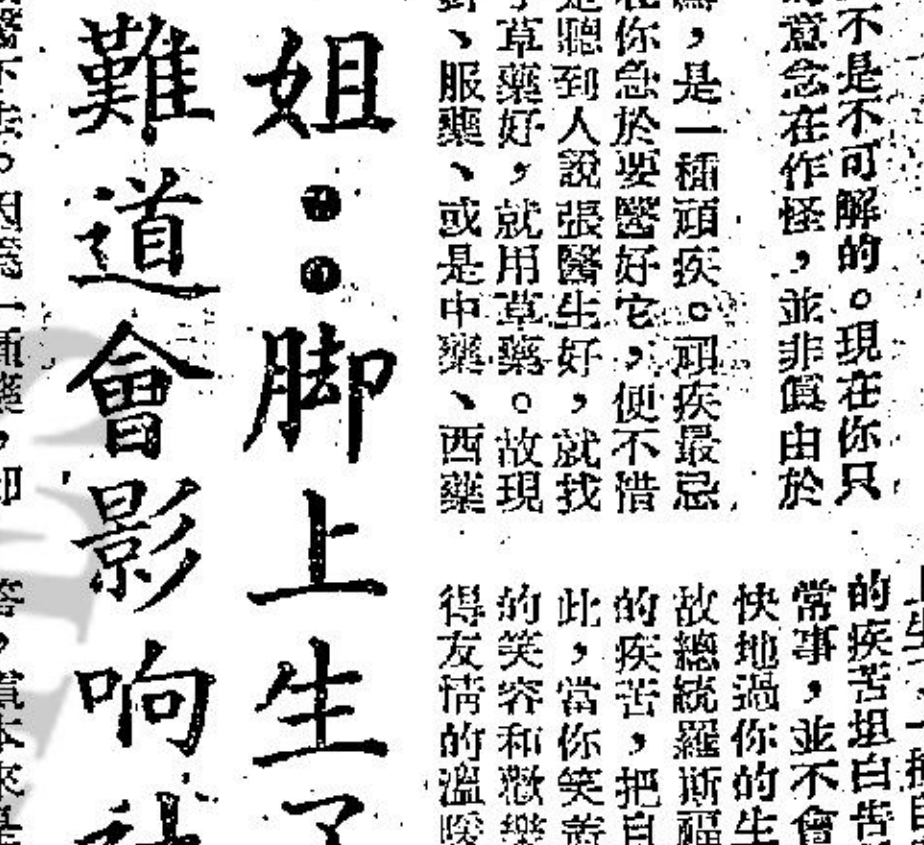 不是不可解的。現在你只
意念在作怪,並非眞由於
,是一種頑疾。頑疾最忌
你急於要醫好它,便不惜
聽到人說張醫生好,就找
草藥好,就用草藥。故現
、服藥、或是中藥、西藥
的疾苦坦白告
常事,並不會
快地過你的生
故總統羅斯福
的疾苦,把自
此,當你笑
的笑容和歡樂
得友情的溫暖
姐:脚上生了
難道會影响